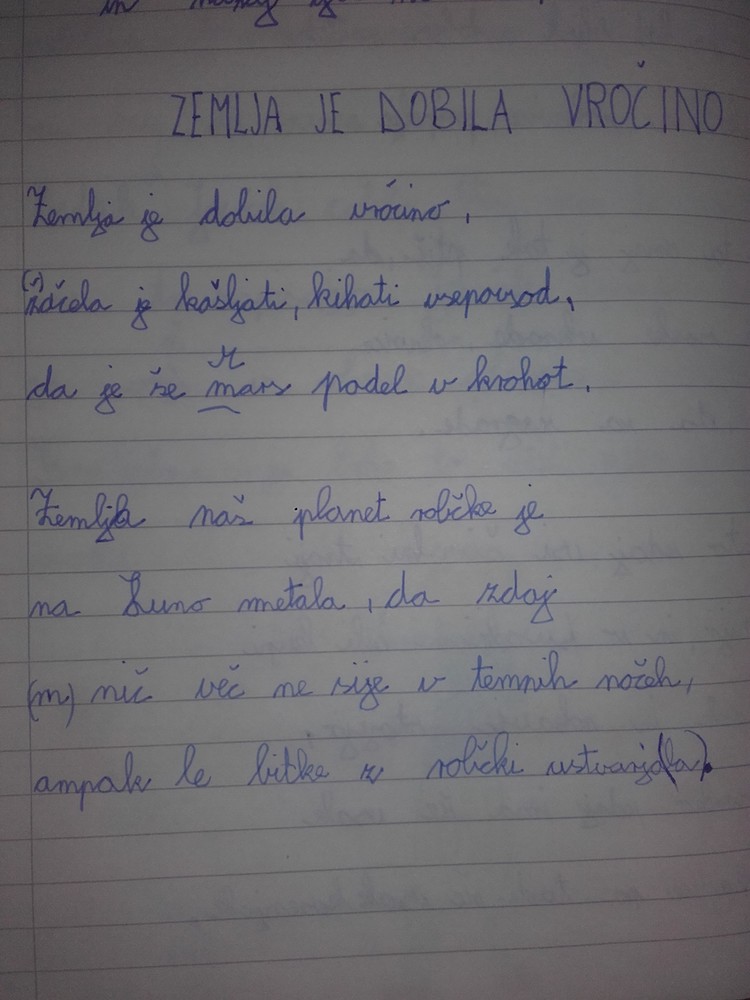 in
ZEMLJA JE DOBILA VROČINO
Zemlja je dobila vročino,
začela je kašljati, kihati vsepovsod,
da je še mars padel v krohot.
Zemlja naš planet robčke je
na Luno metala, da zdaj
(m) nič več ne sije v temnih nočeh,
ampak le bitke z robčki ustvarja(la).